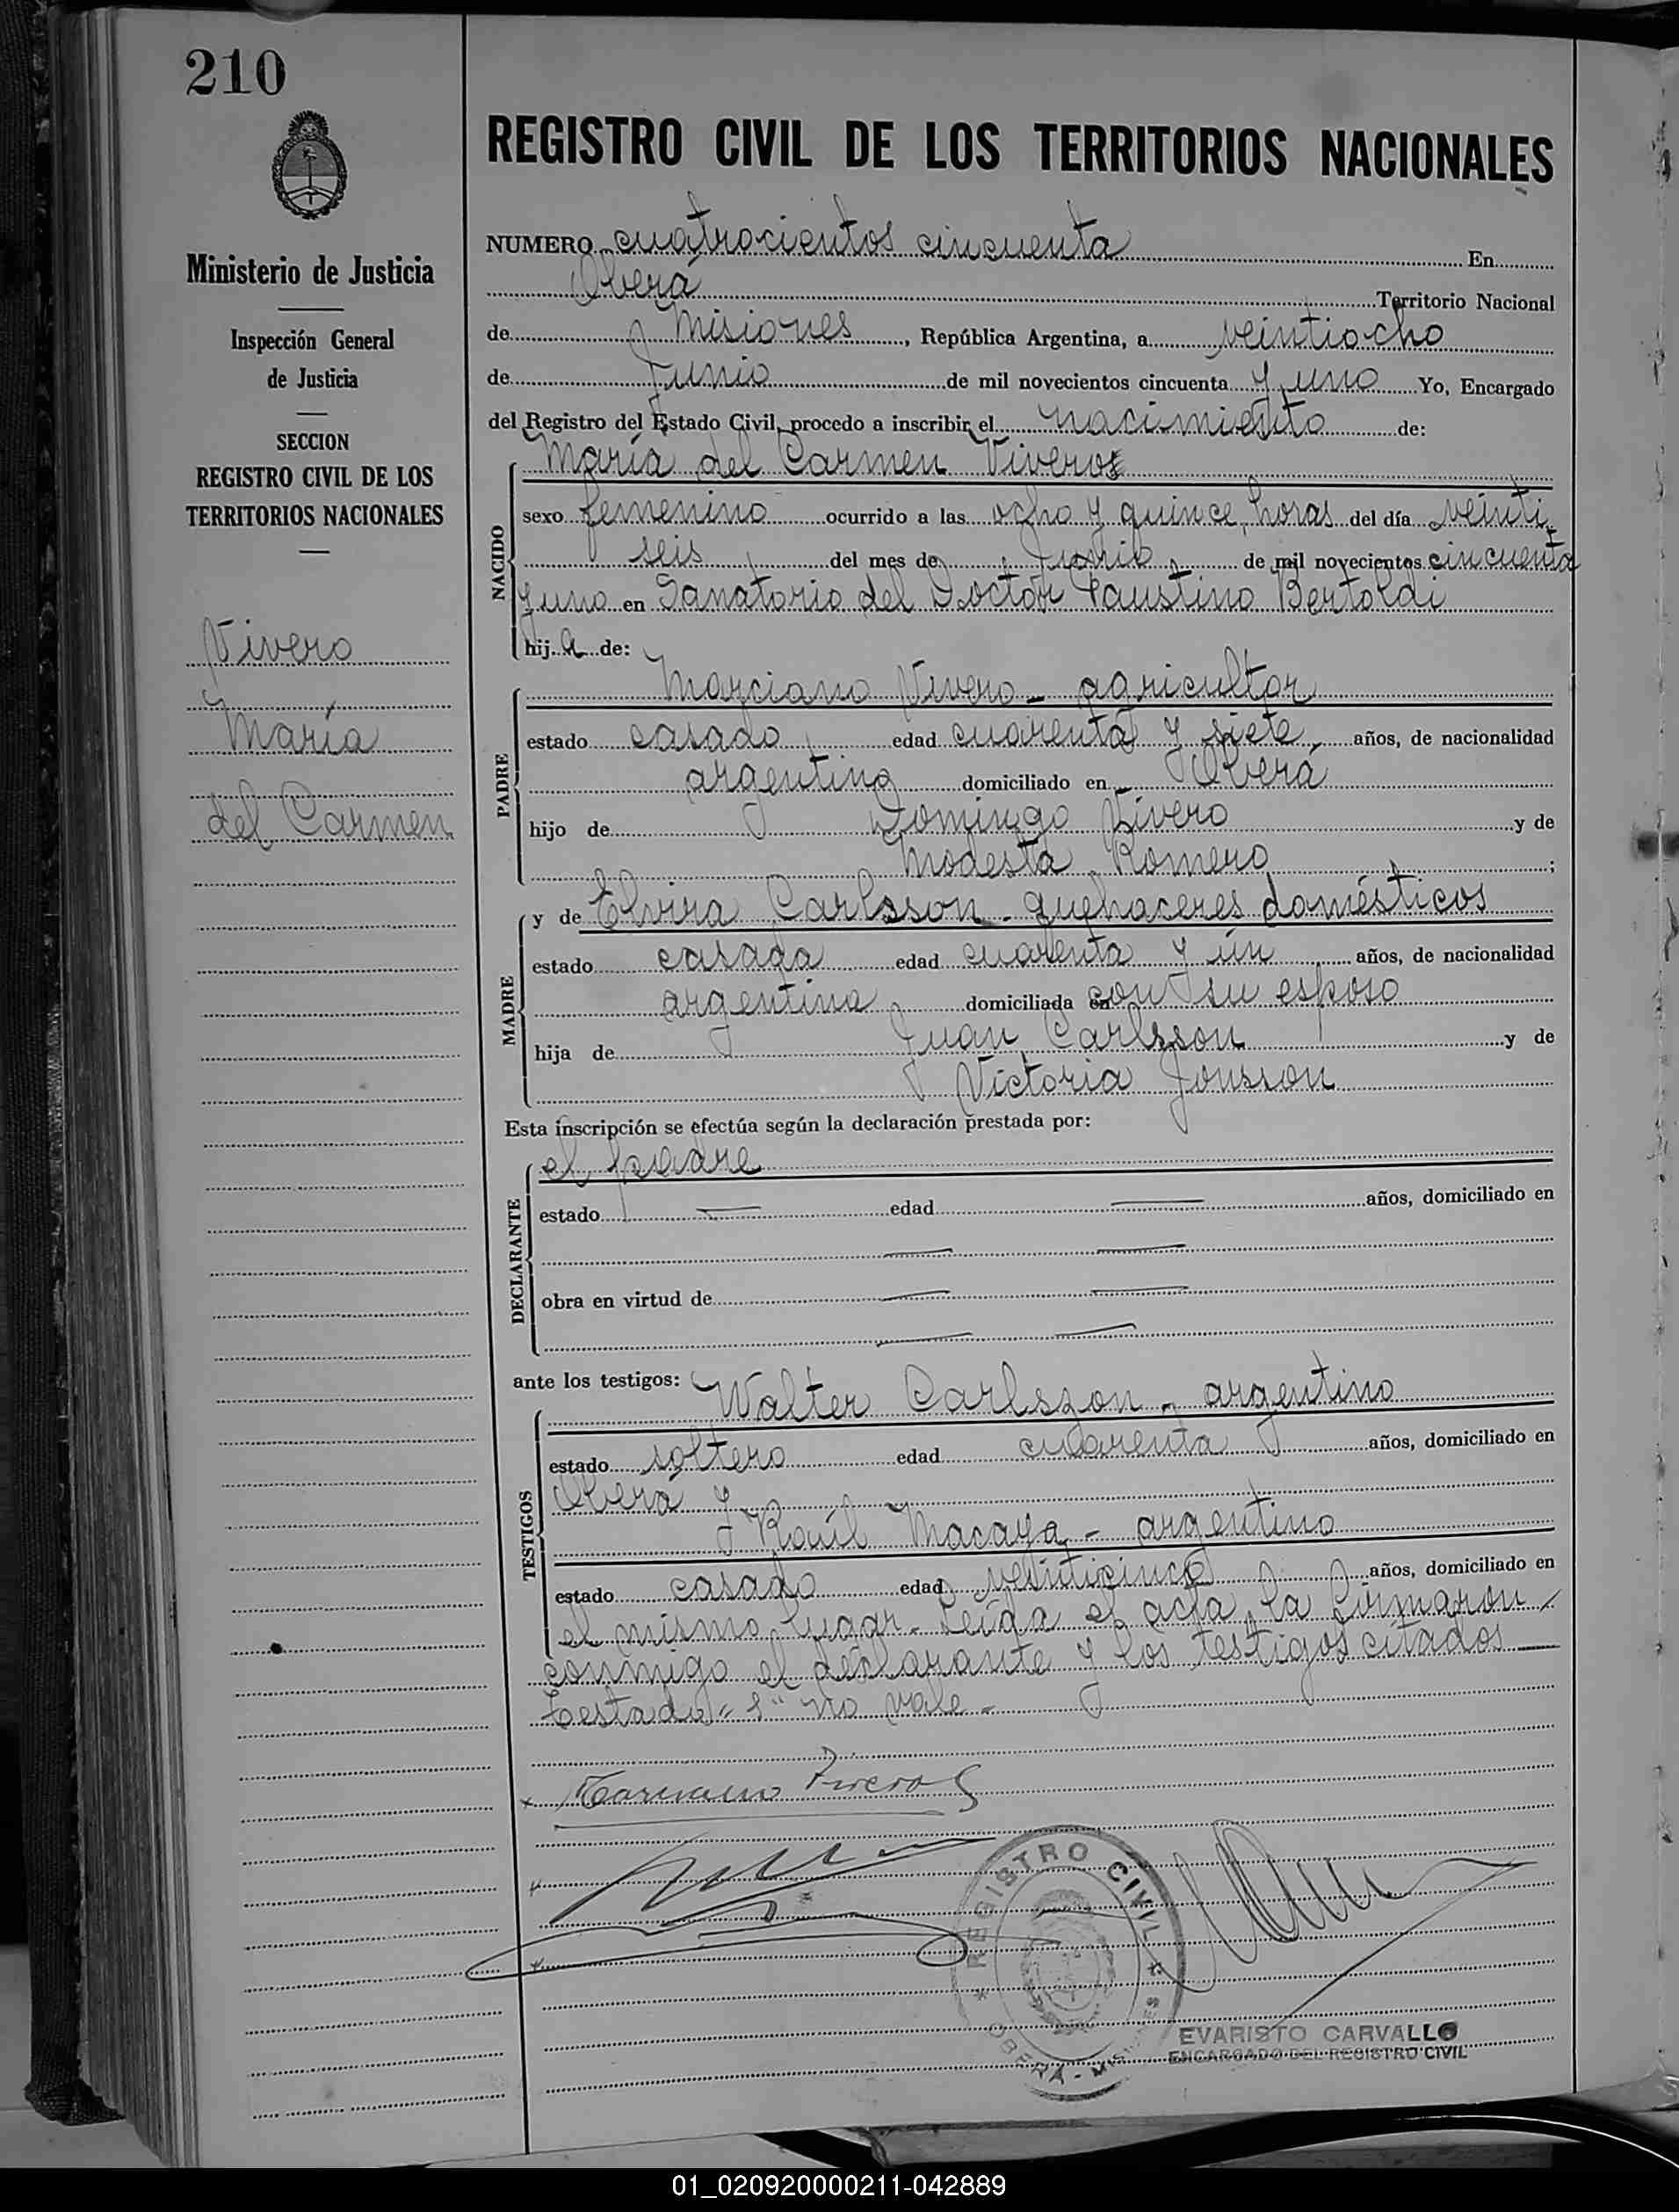 210
Ministerio de Justicia
Inspección General
de Justicia
SECCION
REGISTRO CIVIL DE LOS
TERRITORIOS NACIONALES
Vivero
María
del Carmen
REGISTRO CIVIL DE LOS TERRITORIOS NACIONALES
NUMERO cuatrocientos cincuenta En
Oberá Territorio Nacional
de Misiones, República Argentina, a veintiocho
de Junio de mil novecientos cincuenta y uno Yo, Encargado
del Registro del Estado Civil, procedo a inscribir el nacimiento de:
María del Carmen Viveros
NACIDO
sexo femenino ocurrido a las ocho y quince horas del día veinti
seis del mes de Junio de mil novecientos cincuenta
y uno en Sanatorio del Doctor Faustino Bertoldi
hija de:
PADRE
Marciano Vivero - agricultor
estado casado edad cuarenta y siete años, de nacionalidad
argentino domiciliado en Oberá
hijo de Domingo Vivero y de
Modesta Romero ;
MADRE
y de Elvira Carlsson - quehaceres domésticos
estado casada edad cuarenta y un años, de nacionalidad
argentina domiciliada en con su esposo
hija de Juan Carlsson y de
Victoria Jonsson
Esta inscripción se efectúa según la declaración prestada por:
DECLARANTE
el padre
estado — edad — años, domiciliado en
— —
obra en virtud de — —
— —
ante los testigos:
TESTIGOS
Walter Carlsson - argentino
estado soltero edad cuarenta años, domiciliado en
Oberá y
Raúl Macaya - argentino
estado casado edad veinticinco años, domiciliado en
el mismo lugar. Leída el acta, la firmaron
conmigo el declarante y los testigos citados
Testado "s" no vale -
Marciano Viveros
REGISTRO CIVIL
* OBERÁ - MISIONES *
EVARISTO CARVALLO
ENCARGADO DEL REGISTRO CIVIL
01_020920000211-042889